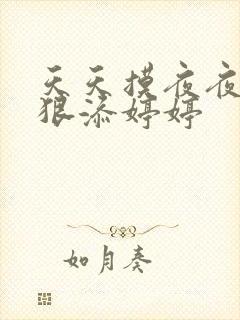 天天摸夜夜
狠添婷婷
如月奏